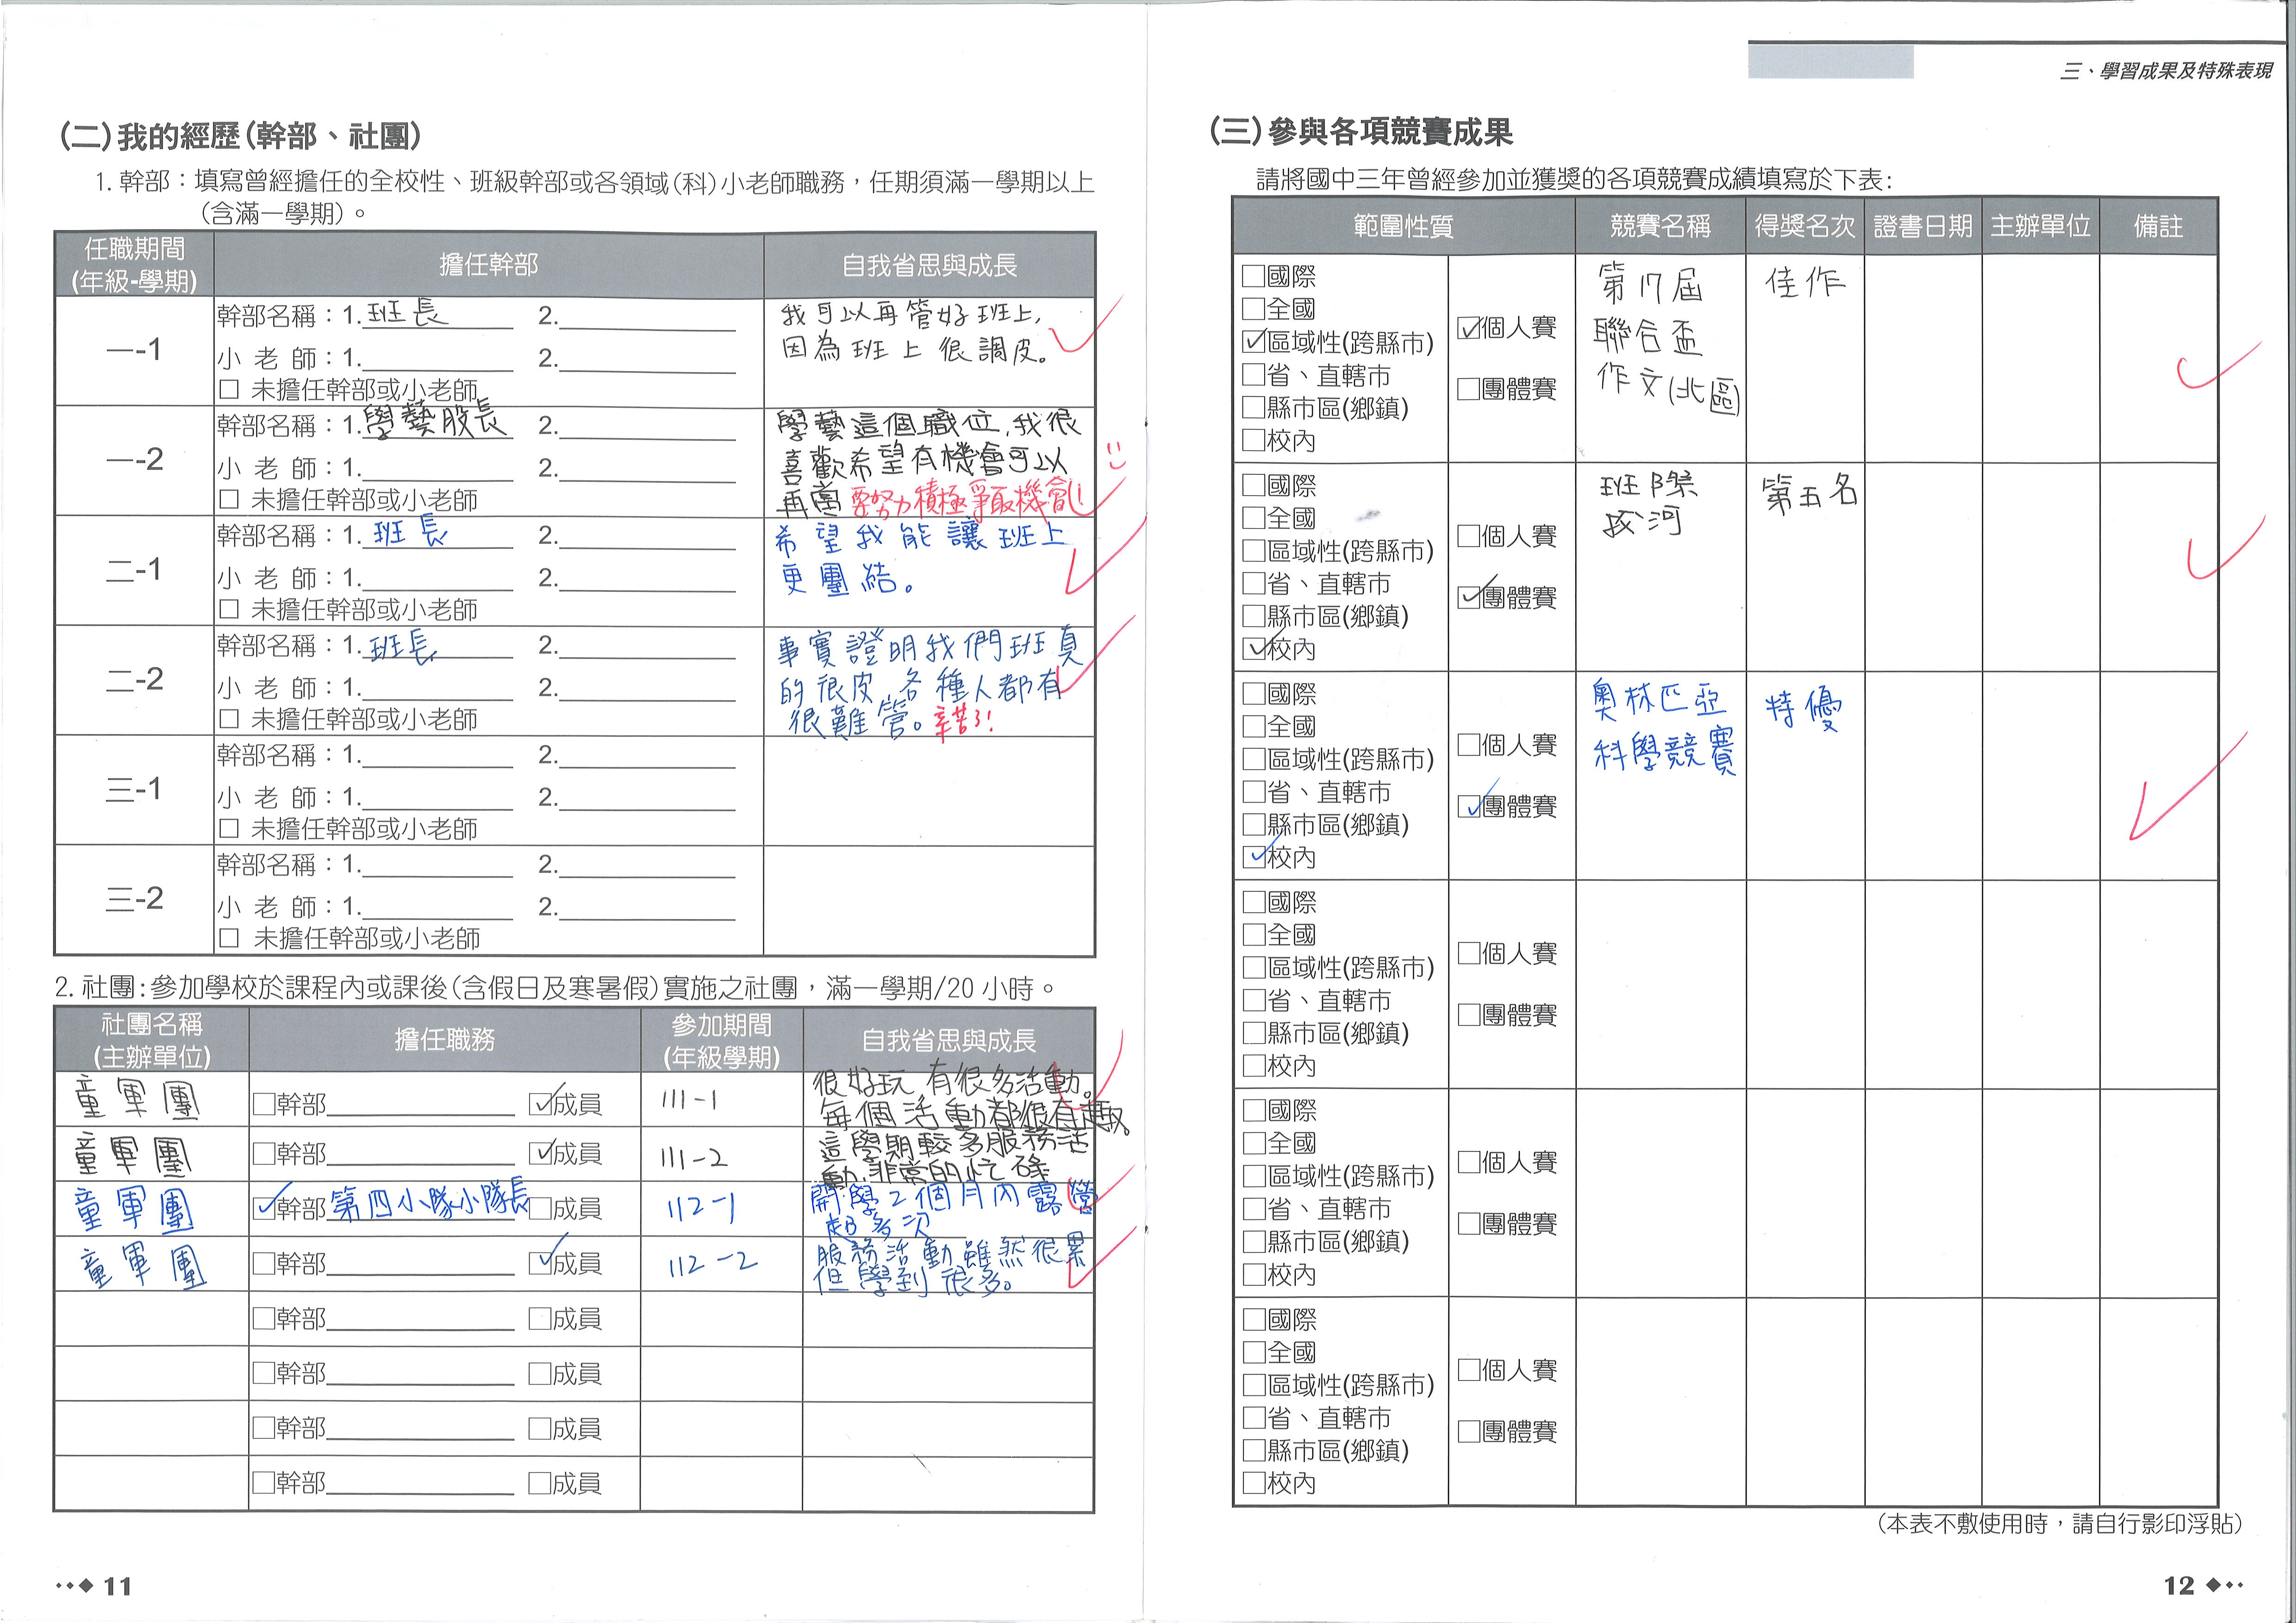 (二)我的經歷(幹部、社團)
1. 幹部：填寫曾經擔任的全校性、班級幹部或各領域(科)小老師職務，任期須滿一學期以上
(含滿一學期)。
任職期間
(年級-學期)
擔任幹部
自我省思與成長
一-1
幹部名稱：1.班長 2.
小 老 師：1. 2.
□ 未擔任幹部或小老師
我可以再管好班上,
因為班上很調皮。
一-2
幹部名稱：1.學藝股長 2.
小 老 師：1. 2.
□ 未擔任幹部或小老師
學藝這個職位,我很
喜歡希望有機會可以
再當 要努力積極爭取機會!
二-1
幹部名稱：1.班長 2.
小 老 師：1. 2.
□ 未擔任幹部或小老師
希望我能讓班上
更團結。
二-2
幹部名稱：1.班長 2.
小 老 師：1. 2.
□ 未擔任幹部或小老師
事實證明我們班真
的很皮,各種人都有
很難管。辛苦了!
三-1
幹部名稱：1. 2.
小 老 師：1. 2.
□ 未擔任幹部或小老師
三-2
幹部名稱：1. 2.
小 老 師：1. 2.
□ 未擔任幹部或小老師
2. 社團:參加學校於課程內或課後(含假日及寒暑假)實施之社團，滿一學期/20 小時。
社團名稱
(主辦單位)
擔任職務
參加期間
(年級學期)
自我省思與成長
童軍團 □幹部 ☑成員 111-1
很好玩,有很多活動。
每個活動都很有趣。
童軍團 □幹部 ☑成員 111-2
這學期較多服務活
動,非常的忙碌
童軍團 ☑幹部第四小隊小隊長 □成員 112-1
開學2個月內露營
超多次
童軍團 □幹部 ☑成員 112-2
服務活動雖然很累
但學到很多。
□幹部 □成員
□幹部 □成員
□幹部 □成員
□幹部 □成員
11
三、學習成果及特殊表現
(三)參與各項競賽成果
請將國中三年曾經參加並獲獎的各項競賽成績填寫於下表:
範圍性質 競賽名稱 得獎名次 證書日期 主辦單位 備註
□國際
□全國
☑區域性(跨縣市)
□省、直轄市
□縣市區(鄉鎮)
□校內
☑個人賽
□團體賽
第17屆
聯合盃
作文(北區)
佳作
□國際
□全國
□區域性(跨縣市)
□省、直轄市
□縣市區(鄉鎮)
☑校內
□個人賽
☑團體賽
班際
拔河
第五名
□國際
□全國
□區域性(跨縣市)
□省、直轄市
□縣市區(鄉鎮)
☑校內
□個人賽
☑團體賽
奧林匹亞
科學競賽
特優
□國際
□全國
□區域性(跨縣市)
□省、直轄市
□縣市區(鄉鎮)
□校內
□個人賽
□團體賽
□國際
□全國
□區域性(跨縣市)
□省、直轄市
□縣市區(鄉鎮)
□校內
□個人賽
□團體賽
□國際
□全國
□區域性(跨縣市)
□省、直轄市
□縣市區(鄉鎮)
□校內
□個人賽
□團體賽
(本表不敷使用時，請自行影印浮貼)
12